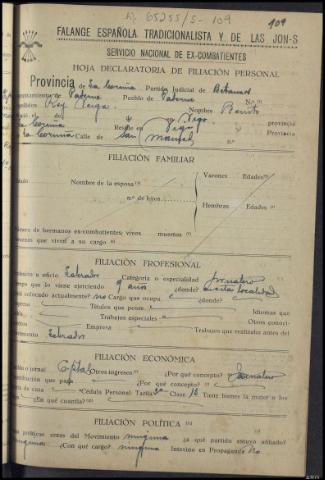 A. 65255/5-109
109
FALANGE ESPAÑOLA TRADICIONALISTA Y DE LAS JON-S
SERVICIO NACIONAL DE EX-COMBATIENTES
HOJA DECLARATORIA DE FILIACIÓN PERSONAL
Provincia de La Coruña Partido Judicial de Betanzos
Paderne Pueblo de Paderne No (1)
Rey Nombre Benito
provincia
La Coruña Reside en Provincia
La Coruña Calle de San
FILIACIÓN FAMILIAR
Varones Edades
Nombre de la esposa
n.º de hijos
Hembras Edades
de hermanos ex-combatientes: vivos muertos
que viven a su cargo
FILIACIÓN PROFESIONAL
u oficio Labrador Categoría o especialidad Jornalero
que lo viene ejerciendo 9 años ¿dónde? localidad
colocado actualmente? no Cargo que ocupa ¿dónde?
Títulos que posee Idiomas que
Trabajos especiales Otros conoci-
Empresa Trabajos que realizaba antes del
Labrador
FILIACIÓN ECONÓMICA
o jornal Otros ingresos ¿Por qué concepto? Jornalero
que paga ¿Por qué concepto?
de casa Cédula Personal: Tarifa 3ª Clase Tiene bienes la mujer o los
¿En qué cuantía?
FILIACIÓN POLÍTICA
políticas antes del Movimiento ninguna ¿a qué partido estuvo afiliado?
¿Con qué cargo? ninguno Intervino en Propaganda No